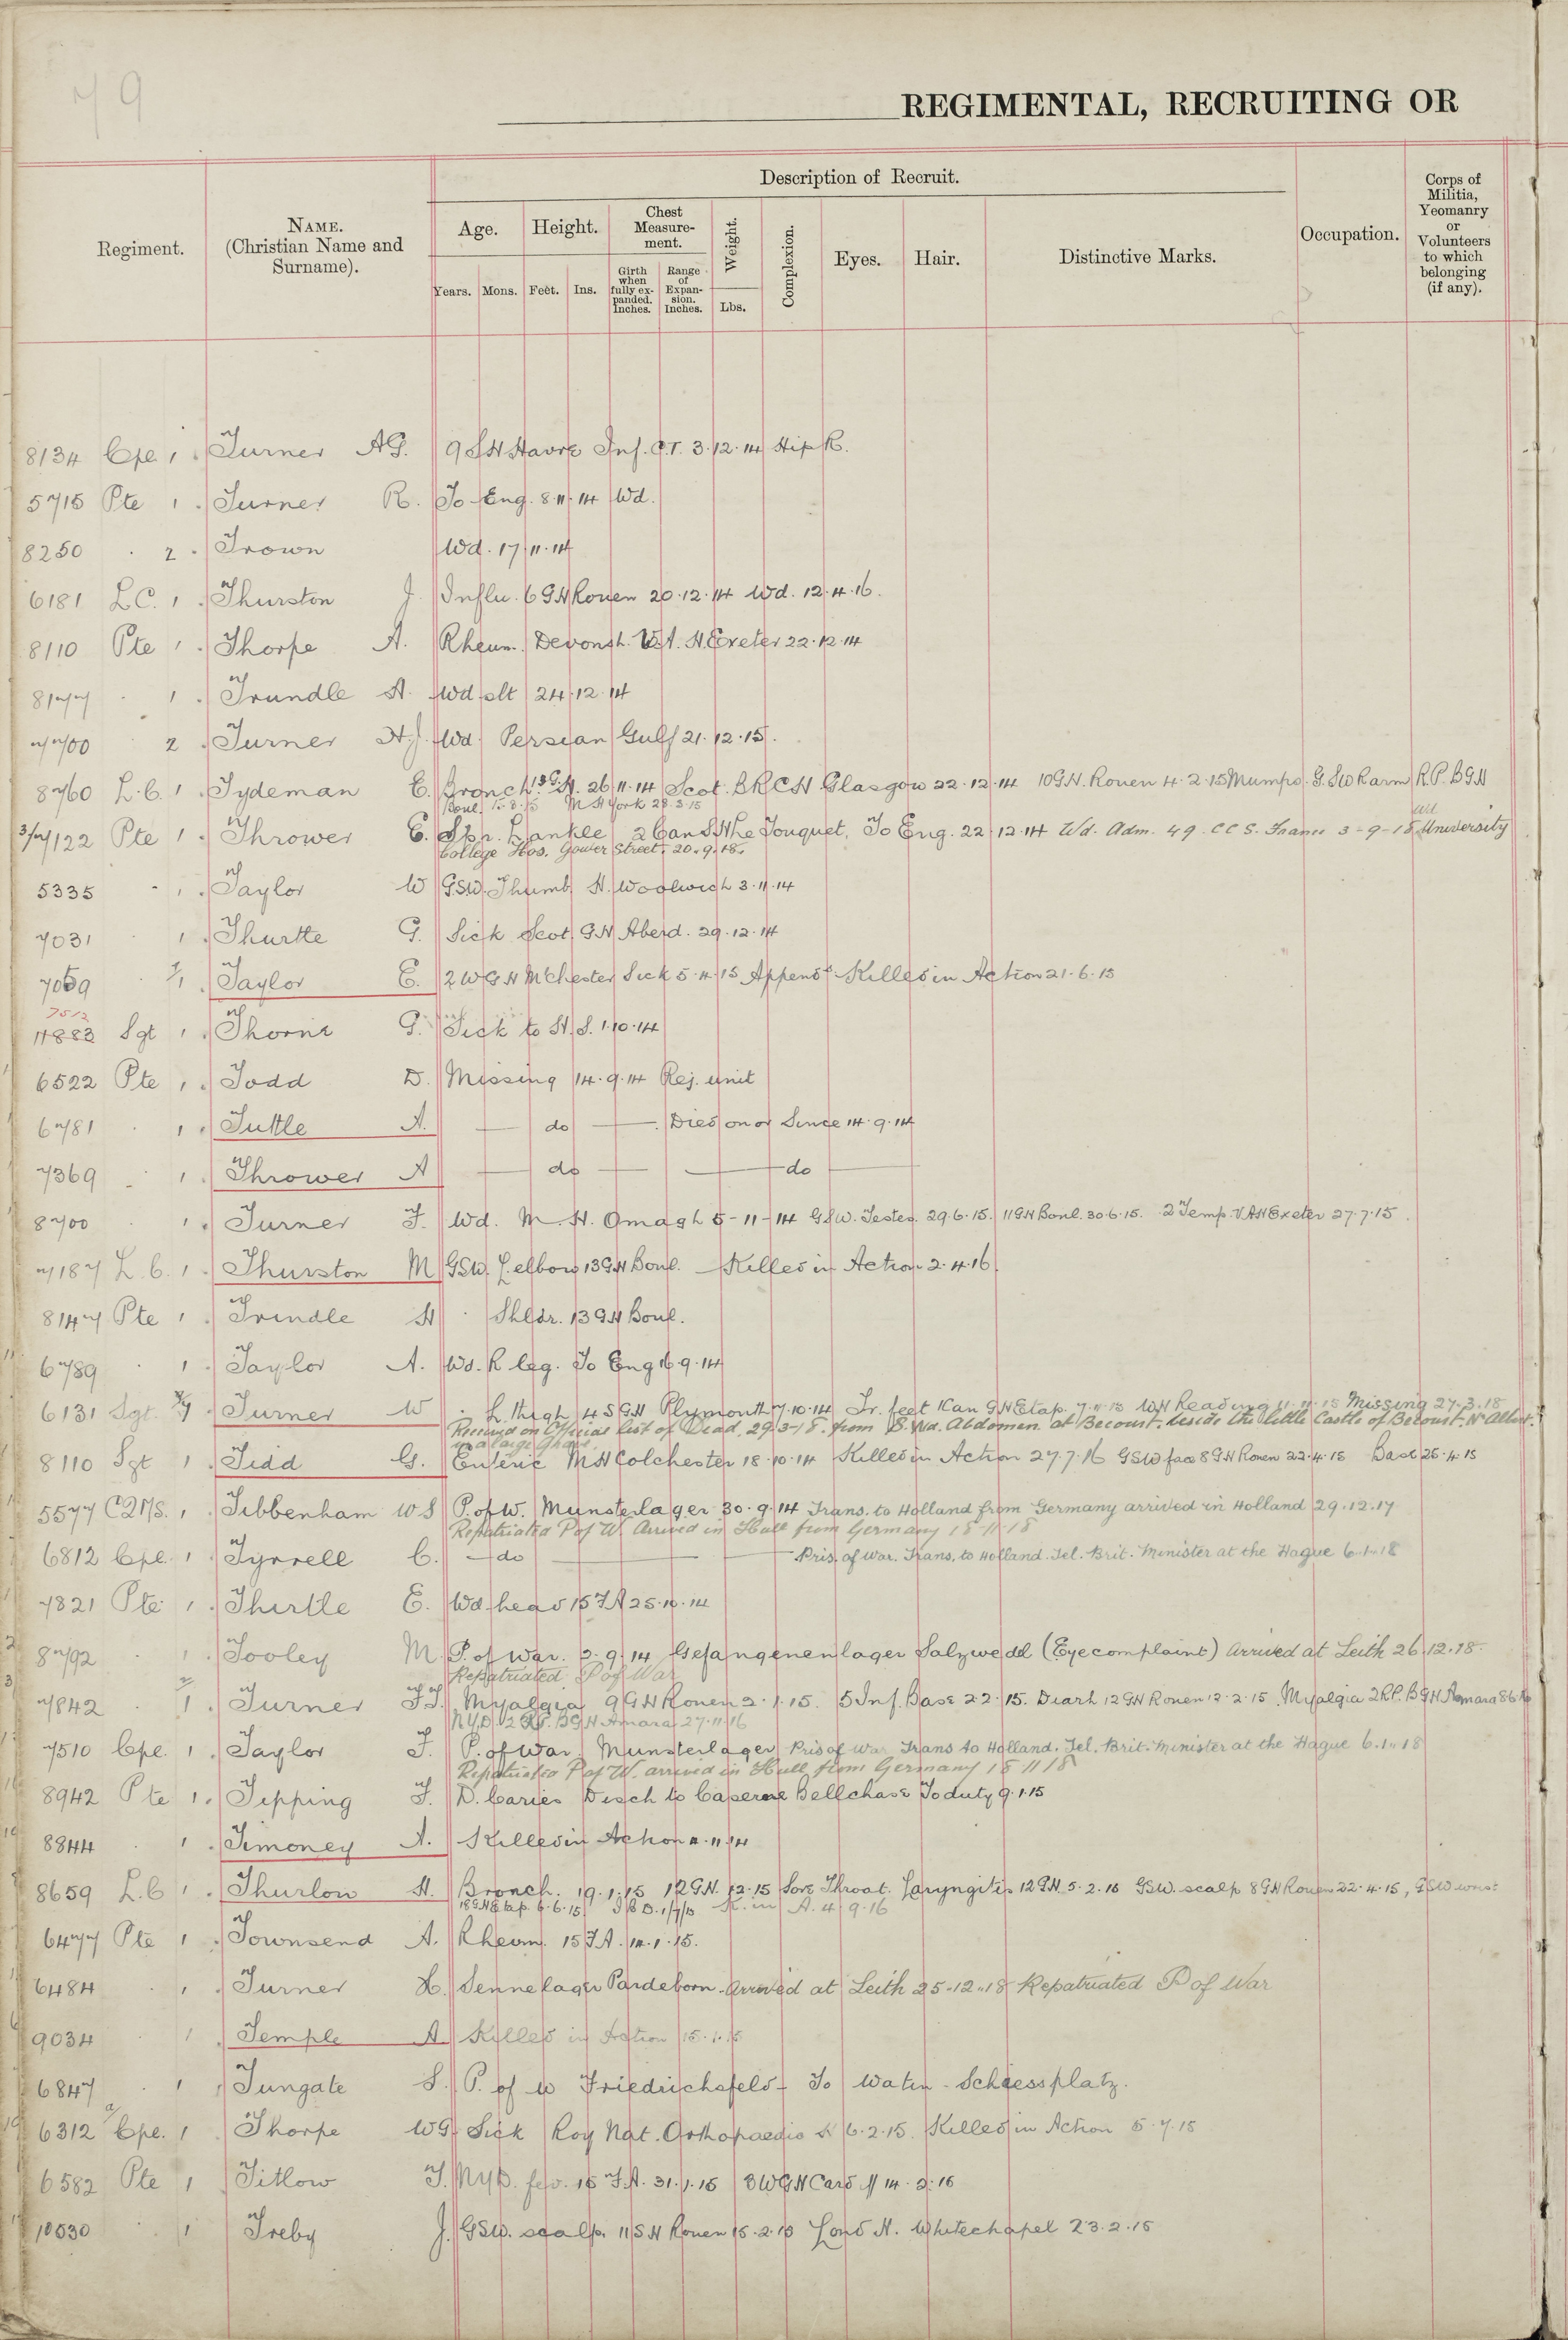 79
REGIMENTAL, RECRUITING OR
Regiment.
NAME.
(Christian Name and
Surname).
Description of Recruit.
Age.
Height.
Chest
Measure-
ment.
Weight.
Complexion.
Eyes.
Hair.
Distinctive Marks.
Occupation.
Corps of
Militia,
Yeomanry
or
Volunteers
to which
belonging
(if any).
Years.
Mons.
Feet.
Ins.
Girth
when
fully ex-
panded.
Inches.
Range
of
Expan-
sion.
Inches.
Lbs.
8134 Cpl. 1 Turner AG. 9 SH Havre Inf. C.T. 3.12.14 Hip R.
5715 Pte 1 Turner R. To Eng. 8.11.14 Wd.
8250 . 2 Trown Wd. 17.11.14
6181 LC. 1 Thurston J. Influ. 6 GH Rouen 20.12.14 Wd. 12.4.16.
8110 Pte 1 Thorpe A. Rheum. Devonsh. H. Exeter 22.12.14
8177 . 1 Trundle A. Wd slt 24.12.14
7700 2 Turner H.J. Wd. Persian Gulf 21.12.15.
8760 L.C. 1 Tydeman E. Bronch. 13 G.H. 26.11.14 Scot. BRCH Glasgow 22.12.14 10 G.H. Rouen 4.2.15 Mumps. G.S.W R arm R.P. BGH
Boul. 15.8.15 M H York 28.3.15
3/7122 Pte 1 Thrower E. Spr. L ankle 2 Can S H he Touquet, To Eng. 22.12.14 Wd. Adm. 49. CCS. France 3-9-18 University
College Hos. Gower Street, 20.9.18.
5335 - 1 Taylor W GSW. Thumb H. Woolwich 3.11.14
7031 . 1 Thurtte G. Sick Scot. GH Aberd. 29.12.14
7059 . Taylor E. 2 W G H M'Chester Sick 5.4.15 Appens. Killed in Action 21.6.15
7512
4883 Sgt 1 Thorne G. Sick to H.S. 1.10.14
6522 Pte 1 Todd D. Missing 14.9.14 Rej. unit
6781 . 1 Tuttle A. do Died on or Since 14.9.14
7369 . 1 Thrower A do do
8700 . 1 Turner F. Wd. M.H. Omagh 5-11-14 GSW. Testes. 29.6.15. 11 GH Boul. 30.6.15. 2 Temp. VAH Exeter 27.7.15
7187 L.C. 1 Thurston M GSW. L elbow 13 GH Boul. Killed in Action 2.4.16
8147 Pte 1 Trindle H . Shldr. 13 GH Boul.
6789 . 1 Taylor A. Wd. R leg. To Eng 16.9.14
6131 Sgt. Turner W . L thigh 4 S GH Plymouth 7.10.14 Tr. feet 1 Can GH Etap. 7.11.15 WH Reading 11.11.15 Missing 27.3.18
on Official list of Dead, 29.3-18. from S. Wd. Abdomen. at Becourt. beside the little Castle of Becourt. Nr Albert.
in a large grave.
8110 Sgt 1 Tidd G. Enteric MH Colchester 18.10.14 Killed in Action 27.7.16 GSW face 8 GH Rouen 22.4.15 Base 25.4.15
5577 CQMS. 1 Tibbenham WS P. of W. Munsterlager 30.9.14 Trans. to Holland from Germany arrived in Holland 29.12.17
Repatriated P of W. Arrived in Hull from Germany 18-11-18
6812 Cpl. 1 Tyrrell C. do Pris. of War. Trans. to Holland. Tel. Brit. Minister at the Hague 6.1.18
7821 Pte 1 Thirtle E. Wd head 15 FA 25.10.14
8792 . 1 Tooley M. P. of War. 2.9.14 Gefangenenlager Salzwedel (Eye complaint) Arrived at Leith 26.12.18.
Repatriated P of War
7842 . 1 Turner FJ. Myalgia 9 GH Rouen 2.1.15. 5 Inf. Base 22.2.15. Diarh 12 GH Rouen 12.2.15 Myalgia 2 R.P. B GH Amara
N.Y.D. 2 R.P. BGH Amara 27.11.16
7510 Cpl. 1 Taylor F. P. of War Munsterlager Pris of War Trans to Holland. Tel. Brit. Minister at the Hague 6.1.18
Repatriated P of W. arrived in Hull from Germany 18 11 18
8942 Pte 1 Tipping F. D. Caries Disch to Caserne Bellchase To duty 9.1.15
8844 1 Timoney A. Killed in Action 4.11.14
8659 L.C 1 Thurlow H. Bronch. 19.1.15 12 GH. 12.15 Sore Throat. Laryngitis 12 GH. 5.2.15 GSW. scalp 8 GH Rouen 22.4.15, GSW
18 GH Etap. 6.6.15 1/7/15 K. in A. 4.9.16
6477 Pte 1 Townsend A. Rheum. 15 FA. 14.1.15.
6484 . 1 Turner H. Sennelager Pardeborn. Arrived at Leith 25-12-18 Repatriated P of War
9034 . 1 Temple A. Killed in Action 15.1.15
6847 . 1 Tungate S. P. of W Friedrichsfeld - To Waten - Schiessplatz.
6312 Cpl. 1 Thorpe WG Sick Roy Nat. Orthopaedic H 6.2.15. Killed in Action 5.7.15
6582 Pte 1 Titlow J. NYD. fev. 15 F.A. 31.1.15 3 WGH Card ff 14.2.15
10530 1 Treby J. GSW. scalp. 11 S H Rouen 15.2.15 Lond H. Whitechapel 23.2.15